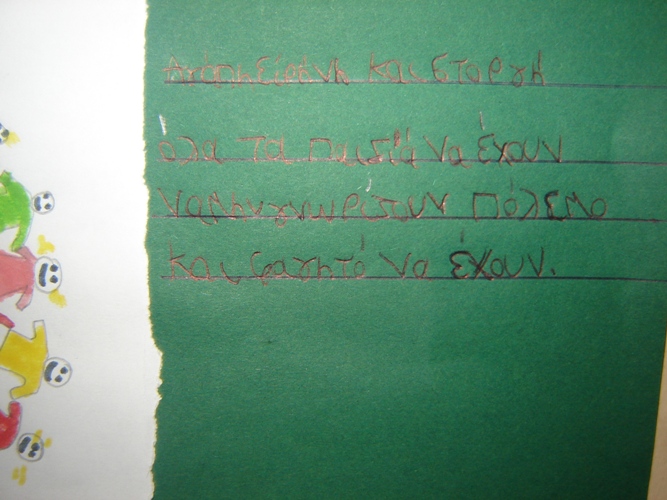 Αγάπη ειρήνη και στοργή
όλα τα παιδιά να έχουν
να μην γνωρίσουν πόλεμο
και φαγητό να έχουν.